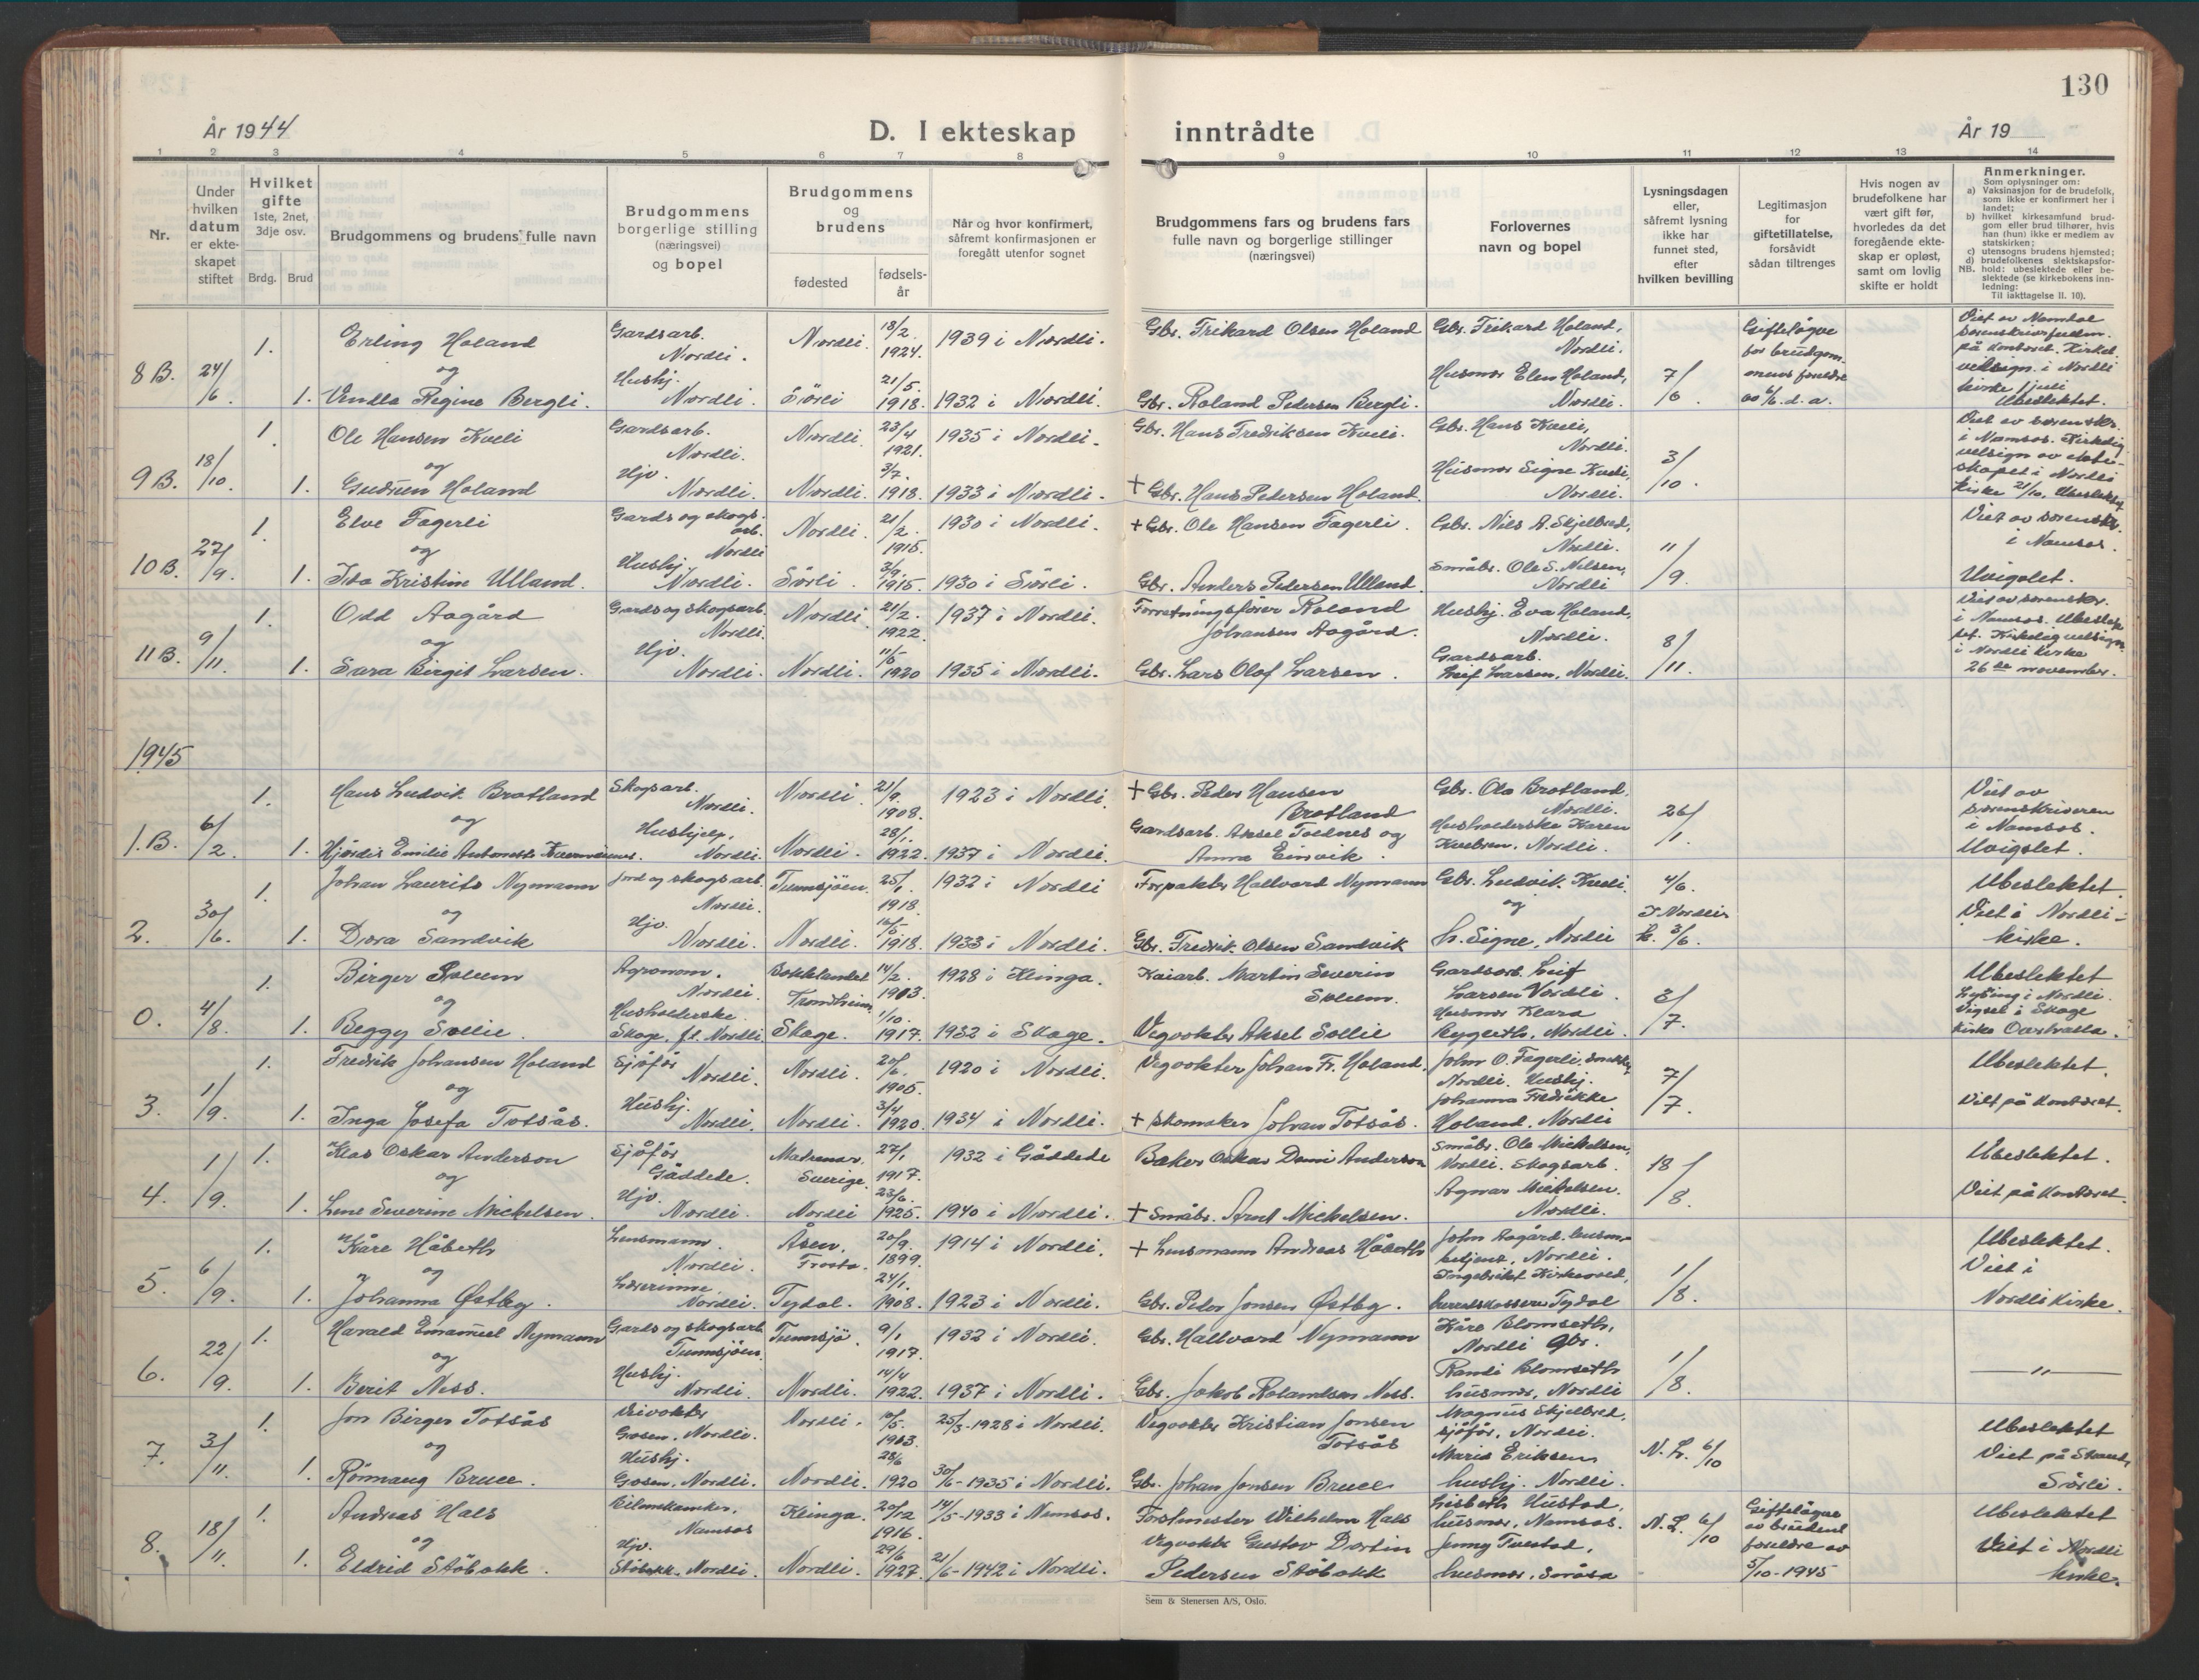 130
År 1944
D. I ekteskap inntrådte
År 19
1 2 3 4 5 6 7 8 9 10 11 12 13 14
Nr.
Under hvilken datum er ekte-skapet stiftet
Hvilket gifte 1ste, 2net, 3dje osv.
Brdg. Brud
Brudgommens og brudens fulle navn
Brudgommens borgerlige stilling (næringsvei) og bopel
Brudgommens og brudens
fødested
fødsels-år
Når og hvor konfirmert, såfremt konfirmasjonen er foregått utenfor sognet
Brudgommens fars og brudens fars fulle navn og borgerlige stillinger (næringsvei)
Forlovernes navn og bopel
Lysningsdagen eller, såfremt lysning ikke har funnet sted, efter hvilken bevilling
Legitimasjon for giftetillatelse, forsåvidt sådan tiltrenges
Hvis nogen av brudefolkene har vært gift før, hvorledes da det foregående ekte-skap er opløst, samt om lovlig skifte er holdt
Anmerkninger.
Som oplysninger om:
a) Vaksinasjon for de brudefolk, som ikke er konfirmert her i landet;
b) hvilket kirkesamfund brud-gom eller brud tilhører, hvis han (hun) ikke er medlem av statskirken;
c) utensogns brudens hjemsted;
d) brudefolkenes slektskapsfor-hold: ubeslektede eller be-slektede (se kirkebokens inn-ledning:
NB. Til iakttagelse II. 10).
8 B. 24/6 1. Erling Holand Gardsarb. Nordli. Nordli. 18/2 1924. 1939 i Nordli. Gbr. Frikard Olsen Holand Gbr. Frikard Holand, Nordli.
og
1. Vendla Regine Bergli. Hushj. Nordli. Sörli 21/5 1918. 1932 i Nordli. Gbr. Roland Pedersen Bergli. Husmor Elen Holand, Nordli. 7/6. Gifteløyve for brudgom-mens foreldre d. a. Viet av Namdal på kontoret. i Nordli kirke 1 juli Ubeslektet.
9 B. 18/10. 1. Ole Hansen Kveli Gardsarb. Nordli. Nordli. 23/4 1921. 1935 i Nordli. Gbr. Hans Fredriksen Kveli. Gbr. Hans Kveli, Nordli.
og
1. Gudrun Holand Hjv. Nordli. Nordli. 3/7. 1918. 1933 i Nordli. + Gbr. Hans Pedersen Holand. Husmor Signe Kveli, Nordli. 3/10. Viet av sorenskr. i Namsos. Kirkelig velsign. av ekte-skapet i Nordli kirke 21/10.
10 B. 27/9. 1. Elve Fagerli Gards og skogs-arb. Nordli Nordli. 21/2. 1915. 1930 i Nordli. + Gbr. Ole Hansen Fagerli. Gbr. Nils A. Skjelbred, Nordli.
og
1. Ida Kristine Ulland. Hushj. Nordli. Sörli. 3/9. 1915. 1930 i Sörli. Gbr. Anders Pedersen Ulland. Småbr. Ole S. Nilsen, Nordli 11/9. Viet av sorenskr. i Namsos. Uvigslet.
11 B. 9/11. 1. Odd Aagård Gards og skogsarb. Nordli. Nordli. 21/2. 1922. 1937 i Nordli. Forretningsfører Roland Johansen Aagård. Hushj. Eva Holand, Nordli.
og
1. Sara Birgit Larsen. Hjv. Nordli. Nordli. 11/6 1920 1935 i Nordli. Gbr. Lars Olof Larsen. Gardsarb. Leif Larsen, Nordli. 8/11. Viet av sorenskr. i Namsos. Ubeslek-tet. Kirkelig velsign. i Nordli kirke 26de november.
1945
1. B. 6/2. 1. Hans Ludvik Brotland Skogsarb. Nordli. Nordli. 21/9. 1908. 1923 i Nordli. + Gbr. Peder Hansen Brotland Gbr. Ola Brotland, Nordli.
og
1. Hjørdis Emilie Antonette Hushjelp, Nordli. Nordli. 28/1. 1922. 1937 i Nordli. Gardsarb. Aksel Toednes og Anna Einvik. Husholderske Karen Nordli. 26/1. Viet av sorenskriveren i Namsos. Uvigslet.
2. 30/6. 1. Johan Laurits Nymann Jord og skogsarb. Nordli. Tunnsjöen. 25/1. 1918. 1932 i Nordli Forpakter Hallvard Nymann Gbr. Ludvik Kveli.
og
1. Dora Sandvik Hjv. Nordli. Nordli. 16/5 1918. 1933 i Nordli. Gbr. Fredrik Olsen Sandvik og fr. Signe, Nordli 4/6. I Nordli k. 3/6. Ubeslektet Viet i Nordli-kirke.
0. 4/8. 1. Birger Soleem Agronom. Nordli. Trondheim 14/2. 1903. 1928 i Klinga. Kaiarb. Martin Severin Soleem. Gardsarb. Leif Larsen Nordli.
og
1. Beggy Sollie. Husholderske Skage. f.t. Nordli Skage. 1/10. 1917. 1932 i Skage. Vegvokter Aksel Sollie Husmor Klara Nordli. 3/7. Ubeslektet Lysing i Nordli. Vigsel i Skage kirke
3. 1/9. 1. Fredrik Johansen Holand Sjåfør Nordli. Nordli. 20/6. 1905. 1920 i Nordli. Vegvokter Johan Fr. Holand. John O. Fagerli, Nordli. Hushj.
og
1. Inga Josefa Totsås. Hushj. Nordli. Nordli. 3/4 1920. 1934 i Nordli. + Skomaker Johan Totsås. Johanna Fredrikke Holand. Nordli 7/7. Ubeslektet. Viet på kontoret.
4. 1/9. 1. Klas Oskar Anderson Sjåfør Gäddede. Sverige. 27/1 1917. 1932 i Gäddede Baker Oskar Anderson Småbr. Ole Mickelsen, Nordli. Skogsarb.
og
1. Lene Severine Mickelsen. Hjv. Nordli. Nordli 23/6. 1925. 1940 i Nordli. + Småbr. Arnt Mickelsen. Agnar Mickelsen. Nordli. 18/8. Ubeslektet. Viet på kontoret.
5. 6/9. 1. Kåre Håbeth Lensmann. Nordli. Åsen, Frosta. 20/9. 1899. 1914 i Nordli. + Lensmann Andreas Håbeth John Aagård. lensm-betjent, Nordli.
og
1. Johanna Østby. Lærerinne, Nordli. Tydal. 24/1. 1908. 1923 i Nordli. Gbr. Peder Jonsen Østby. Ingebrikt Kirkevold, herredskasserer Tydal 1/8. Ubeslektet. Viet i Nordli kirke.
6. 22/9. 1. Harald Emanuel Nymann Gards og skogsarb. Tunnsjöen. Tunnsjø. 9/1 1917. 1932 i Nordli. Gbr. Hallvard Nymann Kåre Blomseth, Nordli Gbr.
og
1. Berit Ness. Hushj. Nordli. Nordli. 14/4 1922. 1937 i Nordli. Gbr. Jakob Rolandsen Ness. Randi Blomseth husmor, Nordli 1/8. — " —
7. 3/11. 1. Jon Birger Totsås Veivokter Grosen. Nordli. Nordli. 10/5. 1913. 25/3-1928 i Nordli. Vegvokter Kristian Jonsen Totsås Magnus Skjelbred, sjåfør, Nordli.
og
1. Rønnaug Bruce. Hushj. Grosen, Nordli. Nordli. 28/6 1920 30/6-1935 i Nordli. Gbr. Johan Jonsen Bruce Maria Eriksen hushj. Nordli. N. L. 6/10 Ubeslektet Viet på Strand, Sörli.
8. 18/11. 1. Andreas Hals Namsos Klinga. 20/12 1916. 14/5-1933 i Namsos. Forstmester Wilhelm Hals Lisbeth Hustad, husmor, Namsos.
og
1. Eldrid Støbakk. Hjv. Støbakk. Nordli. Nordli. 29/6 1927. 21/6-1942 i Nordli. Vegvokter Gustav Dortin Pedersen Støbakk Jenny Tvestad, husmor, Snåsa N. L. 6/10 Gifteløyve av brudens foreldre av 5/10-1945 Ubeslektet Viet i Nordli kirke.
Sem & Stenersen A/S, Oslo.